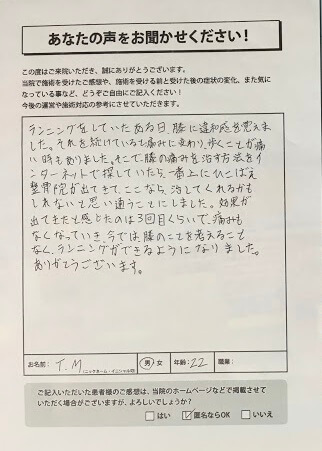 あなたの声をお聞かせください！
この度はご来院いただき、誠にありがとうございます。
当院で施術を受けたご感想や、施術を受ける前と受けた後の症状の変化、また気に
なっている事など、どうぞご自由にご記入ください！
今後の運営や施術対応の参考にさせていただきます。
ランニングをしていたある日、膝に違和感を覚えま
した。それを続けていると痛みに変わり、歩くことが痛
い時もありました。そこで、膝の痛みを治す方法をイ
ンターネットで探していたら、一番上にひこばえ
整骨院が出てきて、ここなら、治してくれるかも
しれないと思い通うことにしました。効果が
出てきたと感じたのは3回目くらいで、痛みも
なくなっていき、今では膝のことを考えること
なく、ランニングができるようになりました。
ありがとうございます。
お名前： T.M （ニックネーム・イニシャル可） 男 女 年齢：22 職業：
ご記入いただいた患者様のご感想は、当院のホームページなどで掲載させて
いただく場合がございますが、よろしいでしょうか？
はい 匿名ならOK いいえ